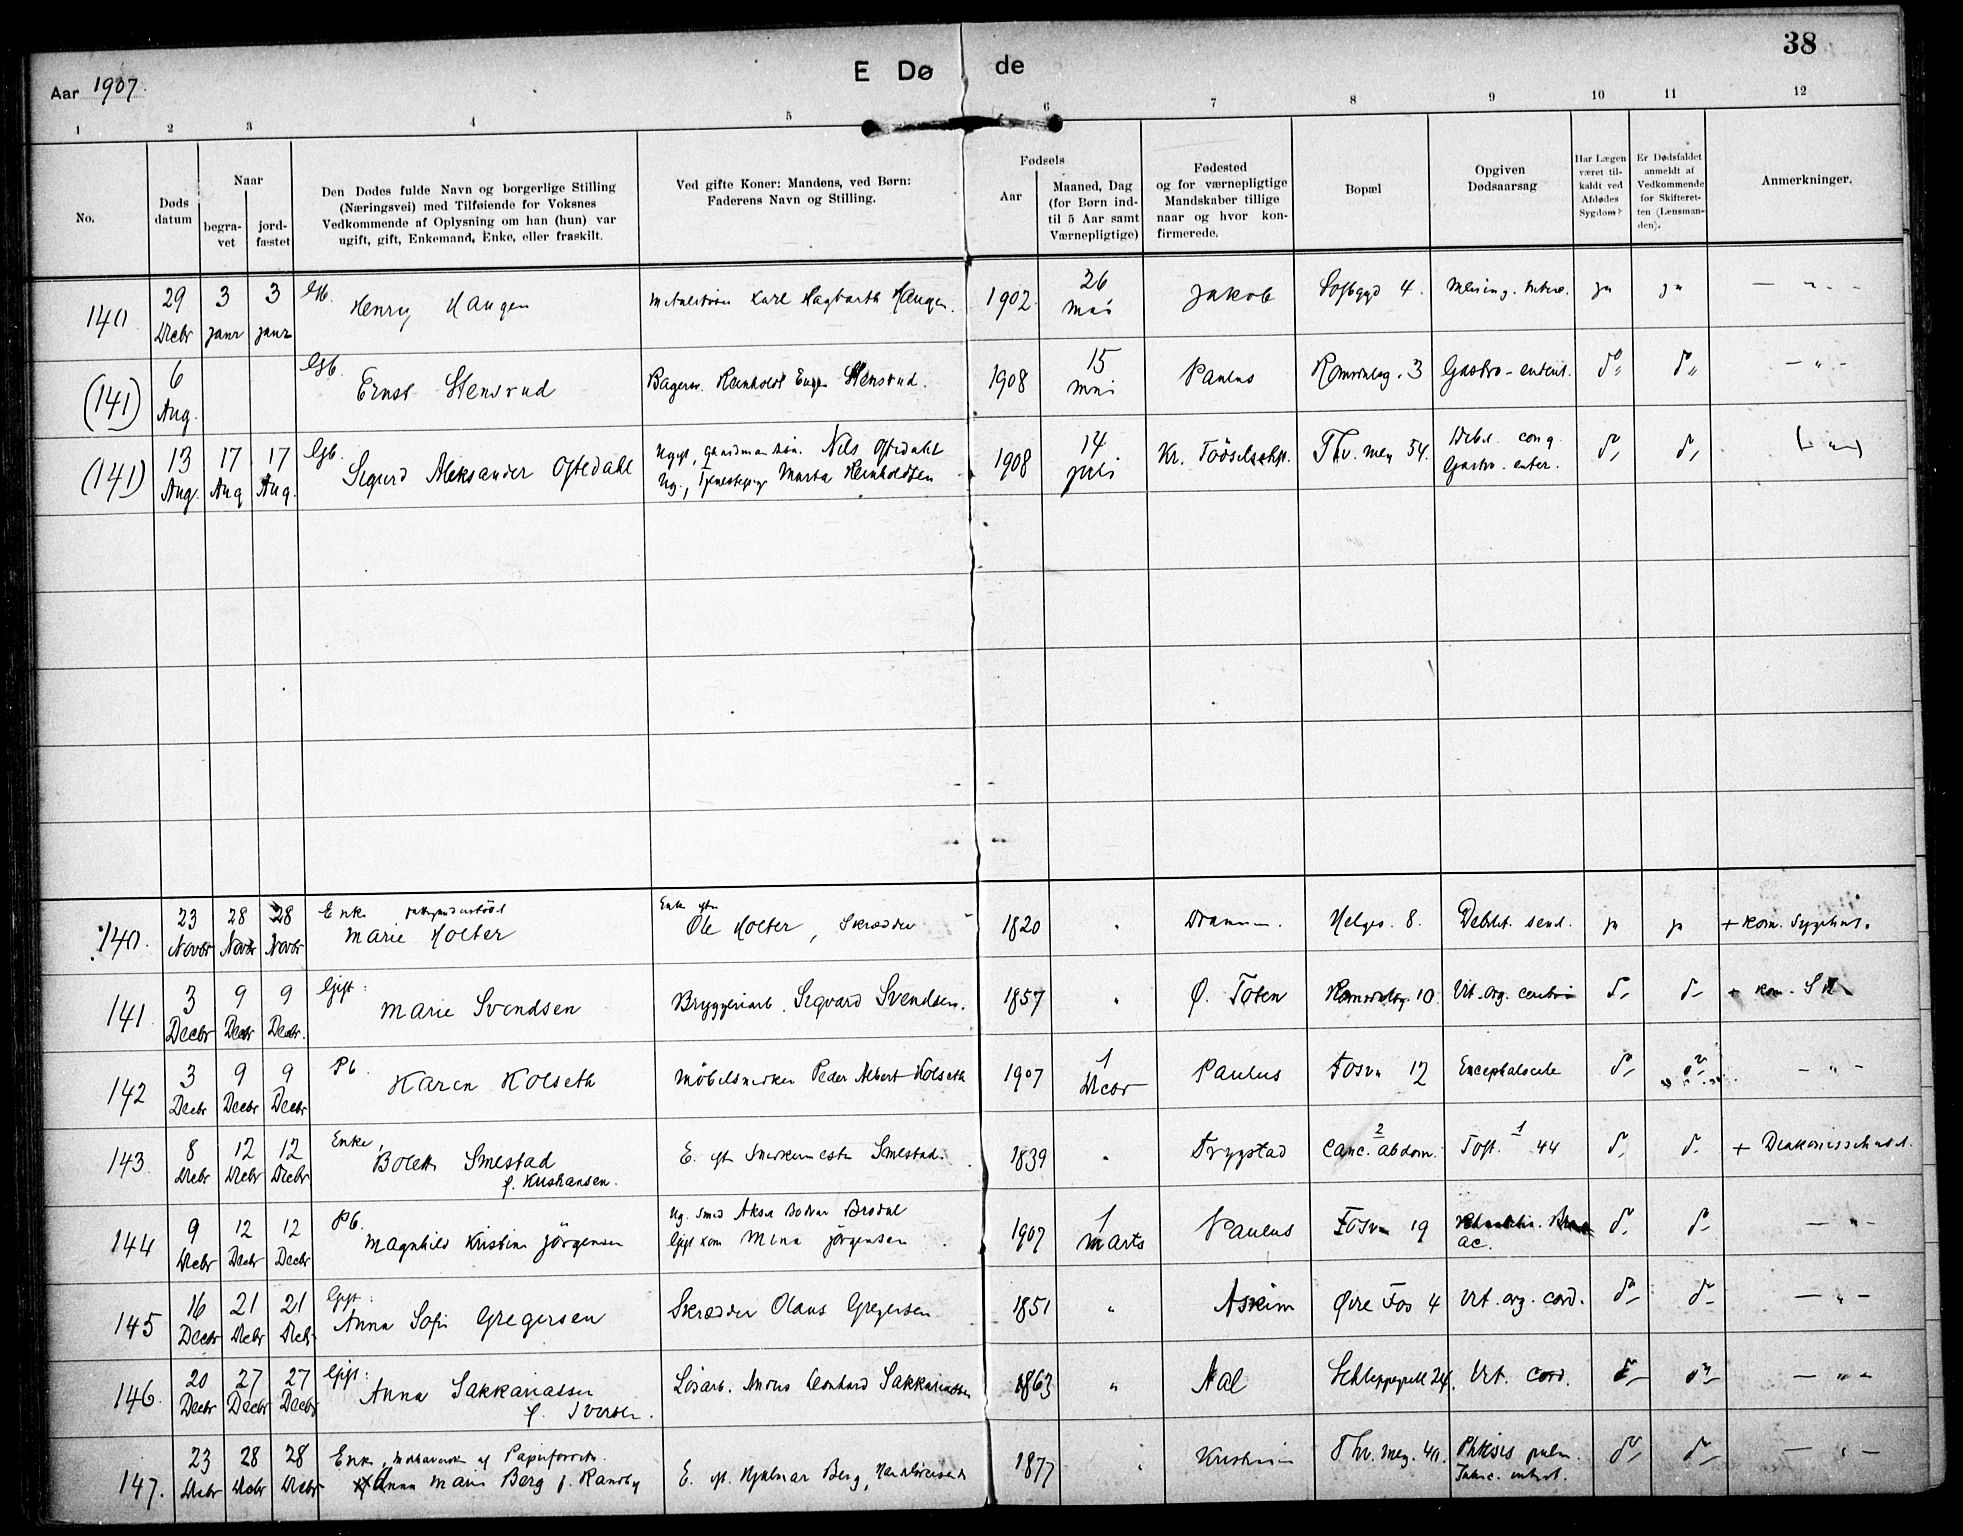 38
E Dø de
Aar 1907.
1 2 3 4 5 6 7 8 9 10 11 12
No.
Døds datum
Naar
begra-vet
jord-fæstet
Den Dødes fulde Navn og borgerlige Stilling
(Næringsvei) med Tilføiende for Voksnes
Vedkommende af Oplysning om han (hun) var
ugift, gift, Enkemand, Enke, eller fraskilt.
Ved gifte Koner: Mandens, ved Børn:
Faderens Navn og Stilling.
Fødsels
Aar
Maaned, Dag
(for Børn ind-
til 5 Aar samt
Værnepligtige)
Fødested
og for værnepligtige
Mandskaber tillige
naar og hvor kon-
firmerede.
Bopæl
Opgiven
Dødsaarsag
Har Lægen
været til-
kaldt ved
Afdødes
Sygdom?
Er Dødsfaldet
anmeldt af
Vedkommende
for Skifteret-
ten (Lænsman-
den).
Anmerkninger.
140 29 Decbr 3 janr 3 janr Gb. Henry Haugen Karl Hagbarth Haugen. 1902. 26 mai Jakob 4. ja ja — „ - -
(141) 6 Aug. Ggb. Ernst Stensrud Bagersv. Reinholdt Stensrud. 1908 15 mai Paulus Romsdalsg. 3 Gastro-enterit. do do — „ -
(141) 13 Aug. 17 Aug 17 Aug. Ggb. Sigurd Aleksander Oftedahl
Nils Oftedahl
Ug., Tjenestepige Marta Reinholdtsen
1908 14 juli Kr. Födselsst. Thv. mey 54. Debil. cong. Gastro-enter. do do
140. 23 Novbr 28 Novbr 28 Novbr Enke fattigunderstöt Marie Holter Enke efter Ole Holter, Skrædder 1820 „ Dramm. Helges. 8. Debilit. senil. ja ja + Kom. Sygehus.
141 3 Decbr 9 Decbr 9 Decbr. Gift: Marie Svendsen Bryggeriarb. Sigvard Svendsen. 1857 „ Ø. Toten Romsdalsg. 10 Vit. org. cerebri do do + kom. S H
142 3 Decbr 9 Decbr 9 Decbr Pb. Karen Holseth Möbelsnekker Peder Albert Holseth 1907 1 Decbr Paulus Fosv. 12 Encephalocele do do — „ -
143. 8 Decbr 12 Decbr 12 Decbr Enke, Bolette Smestad
f. Kristiansen.
E. eft Snekkermester Smestad. 1839 „ Trygstad 2 Canc. abdom. 1 Toft. 44 do do + Diakonissehuset.
144 9 Decbr 12 Decbr 12 Decbr Pb. Magnhild Kristine Jörgensen
Ug. Smed Aksel Brodal
Gift Kone Mina Jörgensen
1907 1 Marts Paulus Fosv. 19 ac. do do — „ -
145 16 Decbr 21 Decbr 21 Decbr Gift: Anna Sofie Gregersen Skrædder Olaus Gregersen 1851 „ Askim Øvre Fos 4 Vit. org. cord. do do — „ —
146 20 Decbr 27 Decbr 27 Decbr Gift: Anna Sakkariassen
f. Iversen.
Lösarb. Leonhard Sakkariassen 1863 „ Aal Schleppegrell 24. Vit. cord. do do — „ -
147. 23 Decbr 28 Decbr 28 Decbr Enke,
Anna Marie Berg f. Randby
E. eft. Hjalmar Berg, Handelsreisende 1877 „ Kristiania Thv. mey. 40. Phtisis pulm. do do — „ —